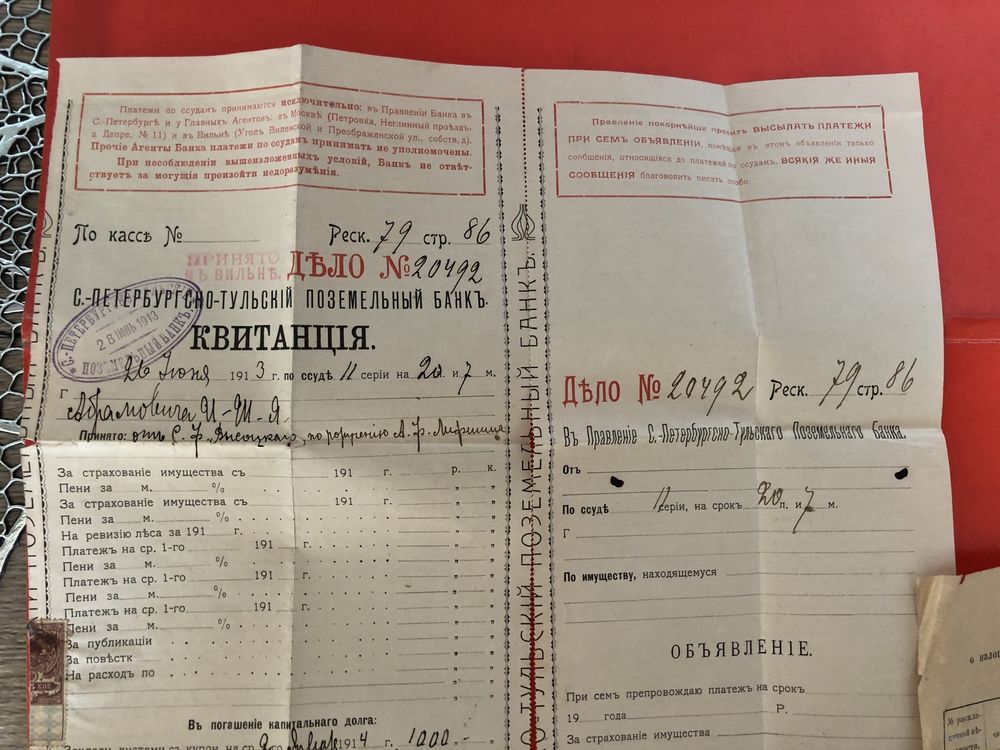 Платежи по ссудамъ принимаются исключительно: въ Правленіи Банка въ
С.-Петербургѣ и у Главныхъ Агентовъ: въ Москвѣ (Петровка, Неглинный проѣздъ
д. Депре, № 11) и въ Вильнѣ (Уголъ Виленской и Преображенской ул., собств. д).
Прочіе Агенты Банка платежи по ссудамъ принимать не уполномочены.
При несоблюденіи вышеизложенныхъ условій, Банкъ не отвѣт-
ствуетъ за могущія произойти недоразумѣнія.
По кассѣ №
Реск. 79 стр. 86
ПРИНЯТО
ВЪ ВИЛЬНѢ.
ДѢЛО № 20492
С.-ПЕТЕРБУРГСКО-ТУЛЬСКІЙ ПОЗЕМЕЛЬНЫЙ БАНКЪ.
КВИТАНЦІЯ.
28 ІЮНЬ 1913
ПОЗЕМЕЛЬНЫЙ БАНКЪ
26 Іюня 1913 г. по ссудѣ 11 серіи на 20 л. и 7 м.
Г Абрамовича И-Ш-Я
Принято: отъ С. Ф. Высоцкаго, по порученію А. Ф. Лифшица
За страхованіе имущества съ 191 г. р. к.
Пени за м. %
За страхованіе имущества съ 191 г.
Пени за м. %
На ревизію лѣса за 191 г.
Платежъ на ср. 1-го 191 г.
Пени за м. %
Платежъ на ср. 1-го 191 г.
Пени за м. %
Платежъ на ср. 1-го 191 г.
Пени за м. %
За публикаціи
За повѣстк
На расходъ по
Въ погашеніе капитальнаго долга:
1914 г. 1000.-
ТУЛЬСКІЙ ПОЗЕМЕЛЬНЫЙ БАНКЪ.
Правленіе покорнѣйше проситъ ВЫСЫЛАТЬ ПЛАТЕЖИ
ПРИ СЕМЪ ОБЪЯВЛЕНІИ, помѣщая въ этомъ объявленіи только
сообщенія, относящіяся до платежей по ссудамъ, ВСЯКІЯ ЖЕ ИНЫЯ
СООБЩЕНІЯ благоволить писать особо.
ДѢЛО № 20492 Реск. 79 стр. 86
Въ Правленіе С.-Петербургско-Тульскаго Поземельнаго Банка.
Отъ
По ссудѣ 11 серіи, на срокъ 20 л. и 7 м.
Г
По имуществу, находящемуся
ОБЪЯВЛЕНІЕ.
При семъ препровождаю платежъ на срокъ
19 года Р.
За страхованіе имущества
о нало
№ раскла-